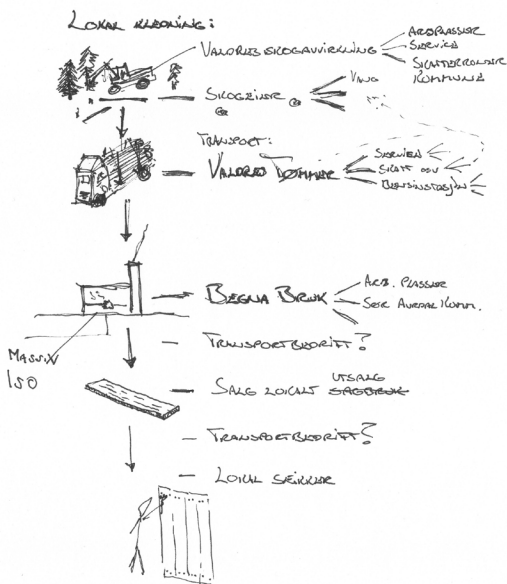 LOKAL KLEDNING:
VALDRES SKOGAVVIRKLING
ARB.PLASSER
SERVICE
SKATTERTILBAKE
KOMMUNE
SKOGEIER
VANG
TRANSPORT:
VALDRES TØMMER
SERVICEN
SKATT OSV
BENSINSTASJON
BEGNA BRUK
ARB. PLASSER
SØR AURDAL KOMM.
MASSIV
ISO
TRANSPORTBEDRIFT?
SALG LOKALT UTSALG
TRANSPORTBEDRIFT?
LOKAL SNEKKER